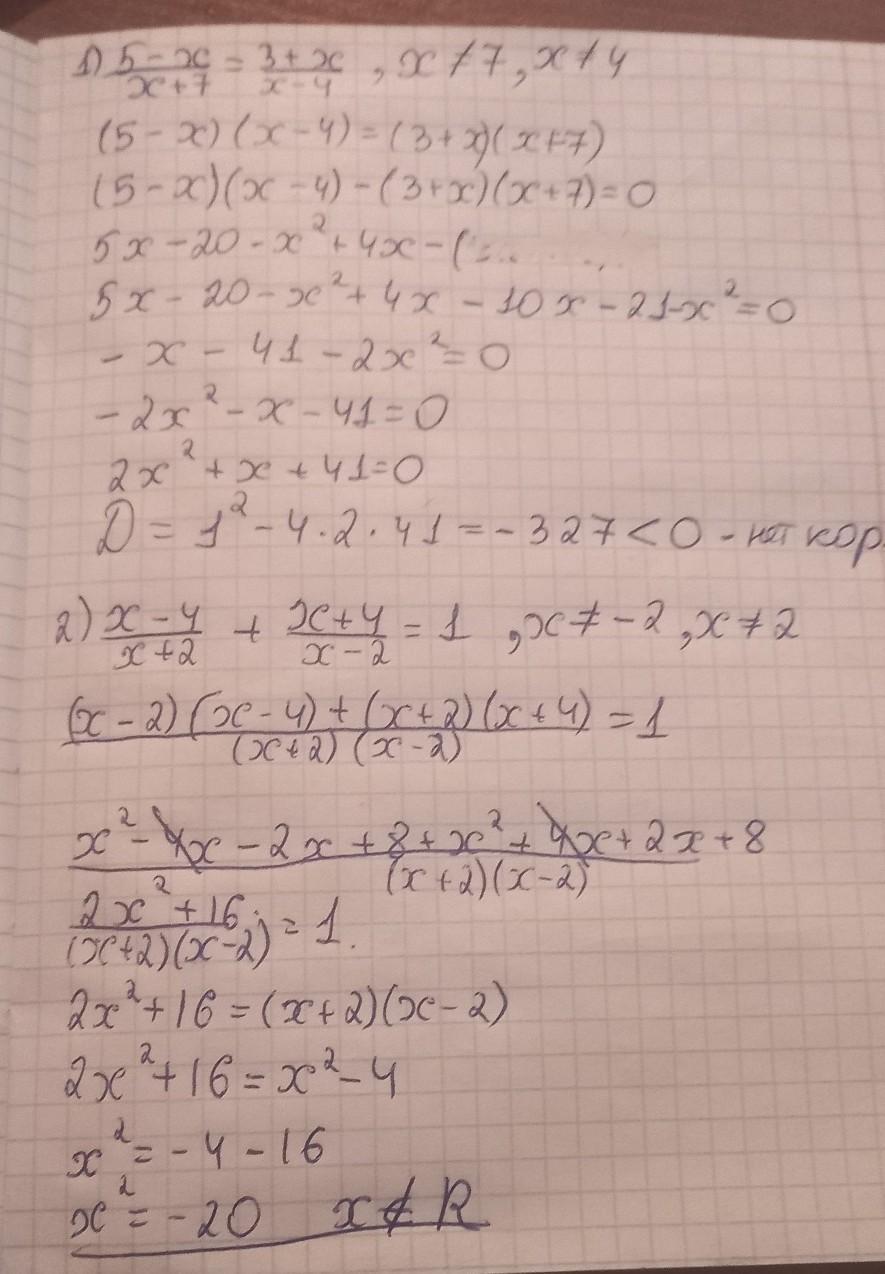 1) (5-x)/(x+7) = (3+x)/(x-4) , x ≠ 7, x ≠ 4
(5-x)(x-4)=(3+x)(x+7)
(5-x)(x-4)-(3+x)(x+7)=0
5x-20-x²+4x-(=.. ..
5x-20-x²+4x-10x-21-x²=0
-x-41-2x²=0
-2x²-x-41=0
2x²+x+41=0
D=1²-4·2·41=-327<0 - нет кор.
2) (x-4)/(x+2) + (x+4)/(x-2) = 1 , x ≠ -2, x ≠ 2
((x-2)(x-4)+(x+2)(x+4))/((x+2)(x-2)) = 1
(x²-4x-2x+8+x²+4x+2x+8)/((x+2)(x-2))
(2x²+16)/((x+2)(x-2)) = 1.
2x²+16=(x+2)(x-2)
2x²+16=x²-4
x²=-4-16
x²=-20 x∉R